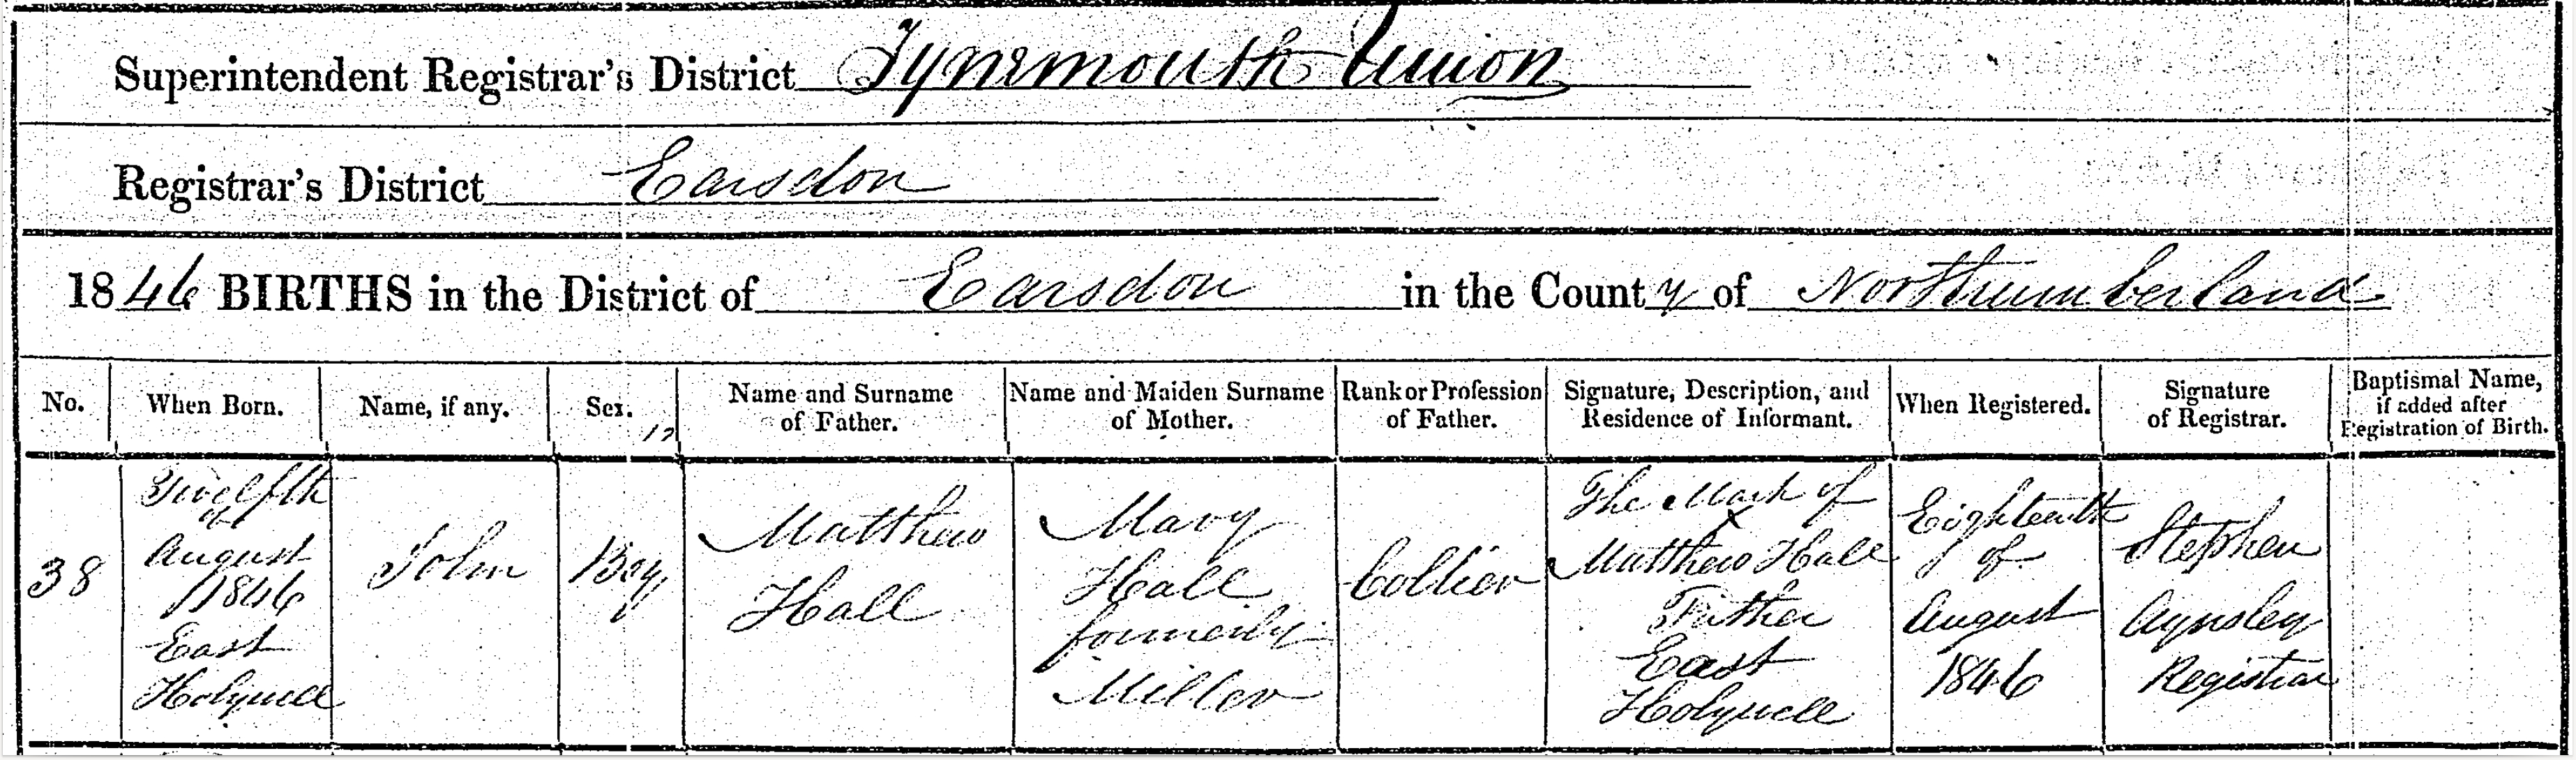 Superintendent Registrar's District Tynemouth Union
Registrar's District Earsdon
1846 BIRTHS in the District of Earsdon in the County of Northumberland
No.
When Born.
Name, if any.
Sex.
Name and Surname
of Father.
Name and Maiden Surname
of Mother.
Rank or Profession
of Father.
Signature, Description, and
Residence of Informant.
When Registered.
Signature
of Registrar.
Baptismal Name,
if added after
Registration of Birth.
38
Twelfth
of
August
1846
East
Holywell
John
Boy
Matthew
Hall
Mary
Hall
formerly
Miller
Collier
The Mark of
X
Matthew Hall
Father
East
Holywell
Eighteenth
of
August
1846
Stephen
Aynsley
Registrar